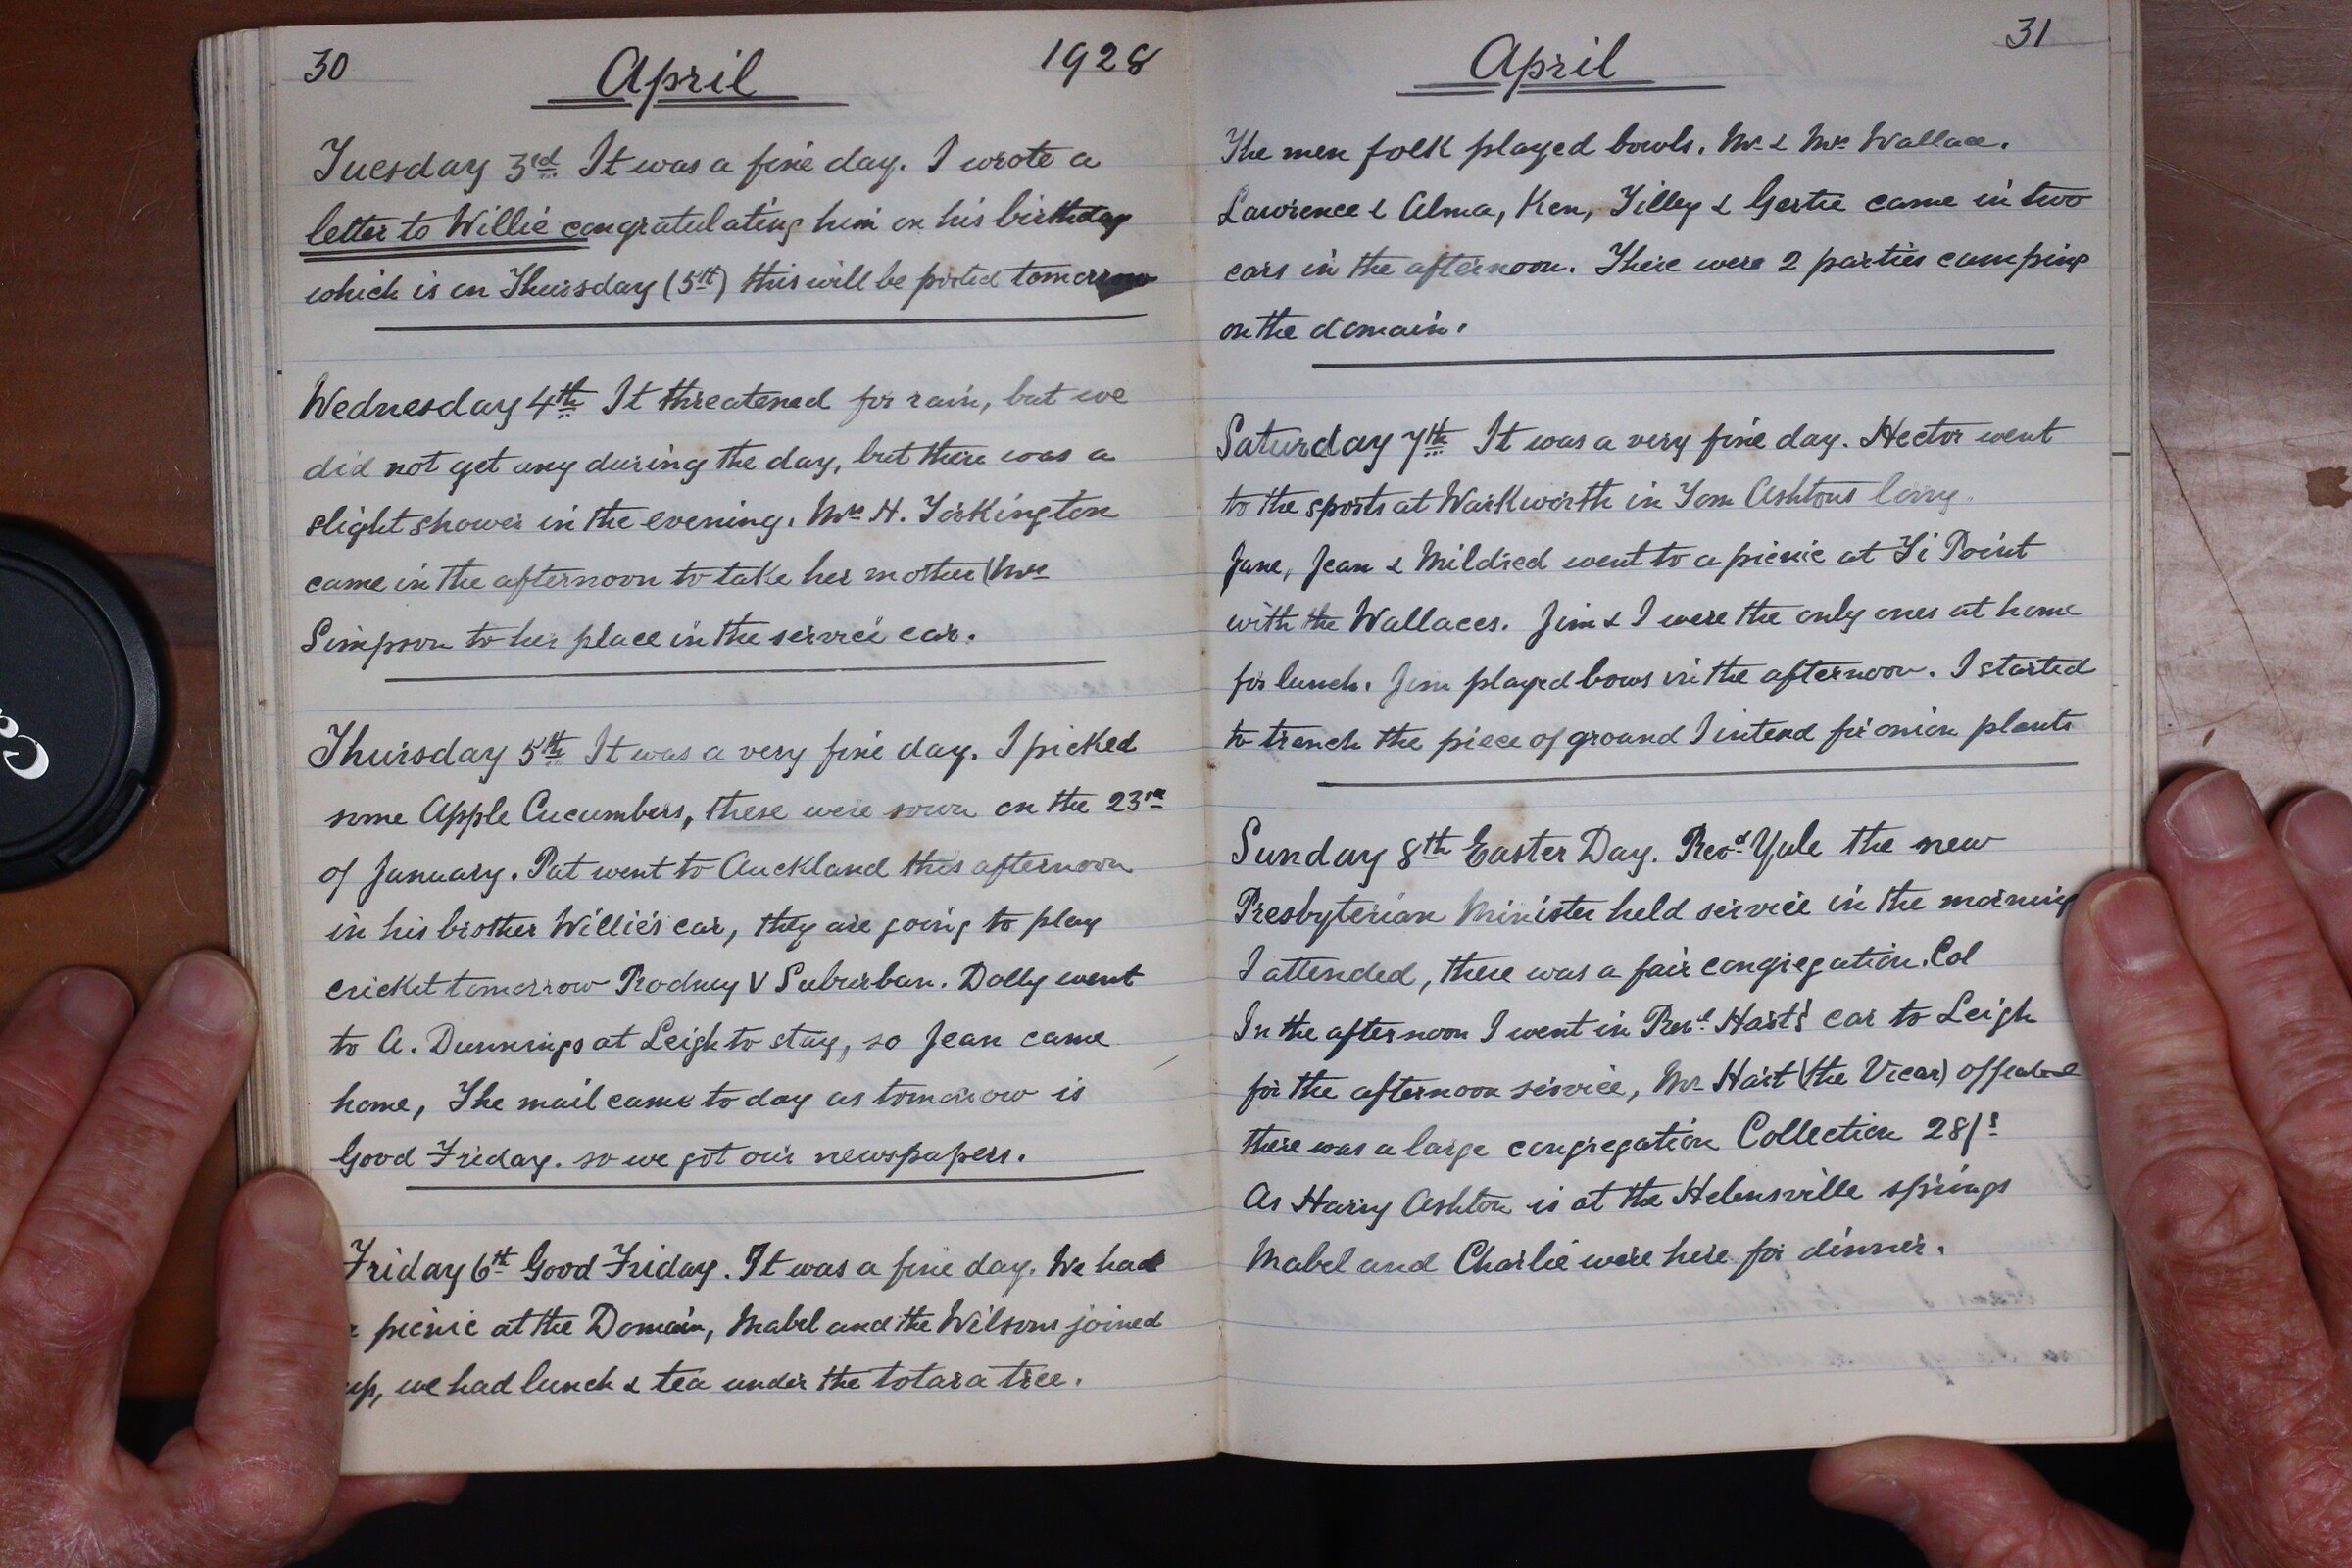 30 April 1928
Tuesday 3rd It was a fine day. I wrote a
letter to Willie congratulating him on his birthday
which is on Thursday (5th) this will be posted tomorrow
Wednesday 4th It threatened for rain, but we
did not get any during the day, but there was a
slight shower in the evening. Mrs H. Torkington
came in the afternoon to take her mother (Mrs
Simpson to her place in the service car.
Thursday 5th It was a very fine day. I picked
some Apple Cucumbers, these were sown on the 23rd
of January. Pat went to Auckland this afternoon
in his brother Willie's car, they are going to play
cricket tomorrow Rodney V Suburban. Dolly went
to A. Dunnings at Leigh to stay, so Jean came
home, The mail came to day as tomorrow is
Good Friday. so we got our newspapers.
Friday 6th Good Friday. It was a fine day. We had
picnic at the Domain, Mabel and the Wilsons joined
up, we had lunch & tea under the totara tree.
April 31
The men folk played bowls. Mr & Mrs Wallace.
Lawrence & Alma, Ken, Tilley & Gertie came in two
cars in the afternoon. There were 2 parties camping
on the domain.
Saturday 7th It was a very fine day. Hector went
to the sports at Warkworth in Tom Ashtons lorry.
Jane, Jean & Mildred went to a picnic at Ti Point
with the Wallaces. Jim & I were the only ones at home
for lunch. Jim played bows in the afternoon. I started
to trench the piece of ground I intend for onion plants
Sunday 8th Easter Day. Revd Yule the new
Presbyterian Minister held service in the morning
I attended, there was a fair congregation. Col
In the afternoon I went in Revd Hart's car to Leigh
for the afternoon service, Mr Hart (the Vicar)
there was a large congregation Collection 28/s
As Harry Ashton is at the Helensville springs
Mabel and Charlie were here for dinner.